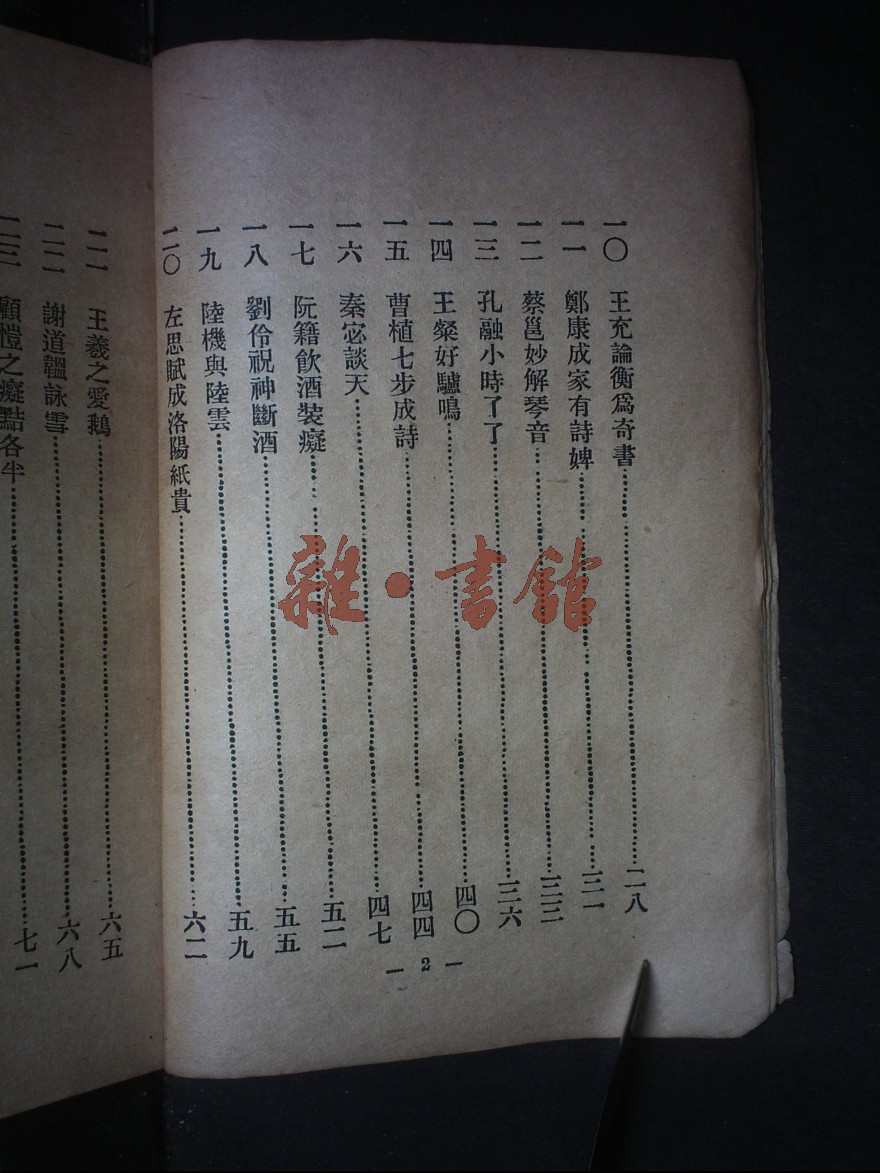 一〇 王充論衡爲奇書……二八
一一 鄭康成家有詩婢……三一
一二 蔡邕妙解琴音……三三
一三 孔融小時了了……三六
一四 王粲好驢鳴……四〇
一五 曹植七步成詩……四四
一六 秦宓談天……四七
一七 阮籍飲酒裝癡……五二
一八 劉伶祝神斷酒……五五
一九 陸機與陸雲……五九
二〇 左思賦成洛陽紙貴……六二
— 2 —
二一 王羲之愛鵝……六五
二二 謝道韞詠雪……六八
二三 顧愷之癡黠各半……七一
雜·書館